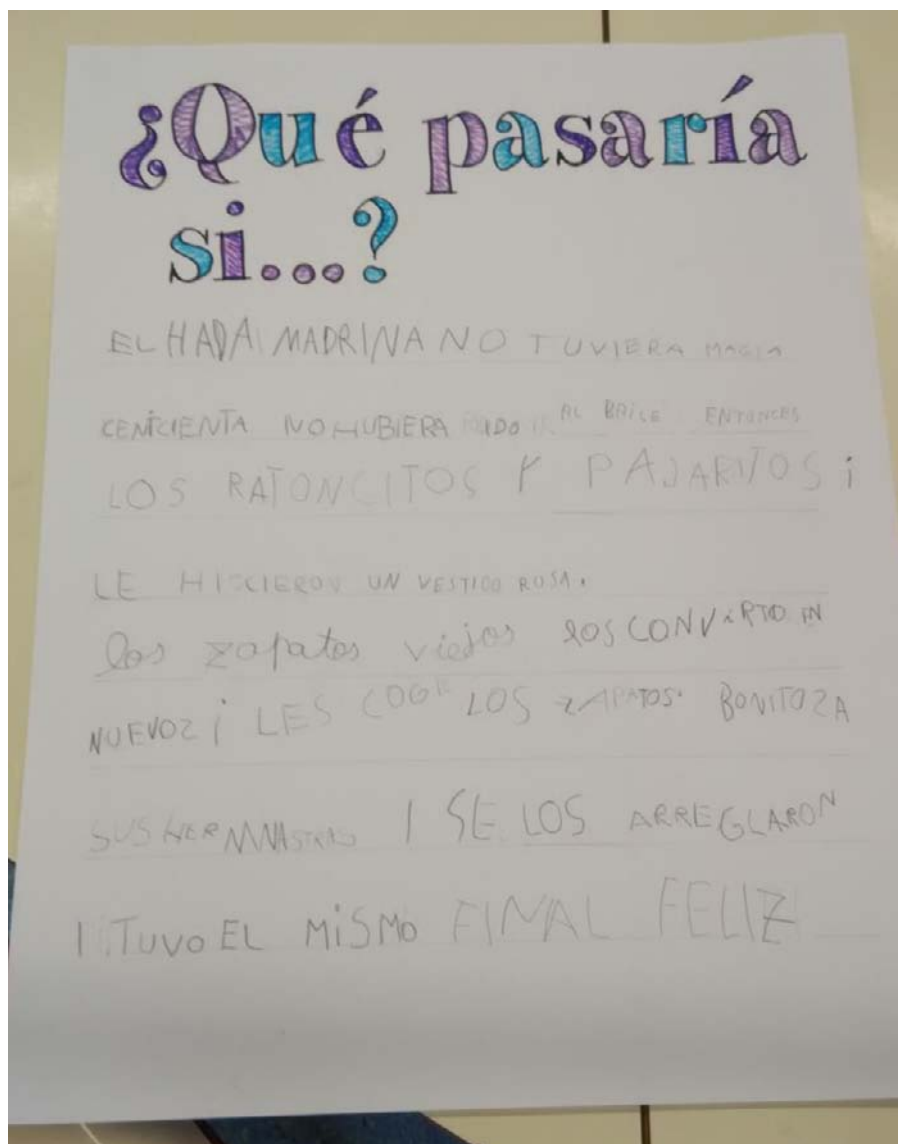 ¿Qué pasaría
si...?
EL HADA MADRINA NO TUVIERA MAGIA
CENICIENTA NO HUBIERA IDO AL BAILE ENTONCES
LOS RATONCITOS Y PAJARITOS i
LE HICIERON UN VESTIDO ROSA.
los zapatos viejos LOS CONVIRTIO EN
NUEVOZ i LES COGE LOS ZAPATOS BONITOZ A
SUS HERMANASTRAS I SE LOS ARREGLARON
I TUVO EL MiSMO FINAL FELIZ